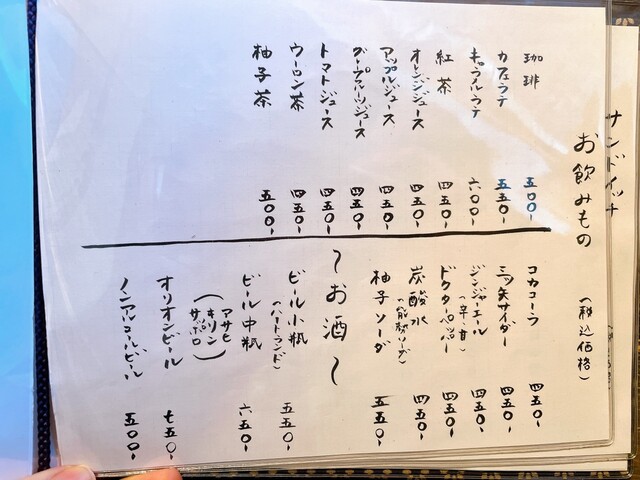 サンドイッチ
お飲みもの （税込価格）
珈琲 五〇〇-
カフェラテ 五五〇-
キャラメルラテ 六〇〇-
紅茶 四五〇-
オレンジジュース 四五〇-
アップルジュース 四五〇-
グレープフルーツジュース 四五〇-
トマトジュース 四五〇-
ウーロン茶 四五〇-
柚子茶 五〇〇-
コカコーラ 四五〇-
三ツ矢サイダー 四五〇-
ジンジャーエール（辛・甘） 四五〇-
ドクターペッパー 四五〇-
炭酸水 四五〇-
柚子ソーダ 五五〇-
～お酒～
ビール小瓶（ハートランド） 五五〇-
ビール中瓶 六五〇-
（アサヒ
キリン
サッポロ）
オリオンビール 七五〇-
ノンアルコールビール 五〇〇-